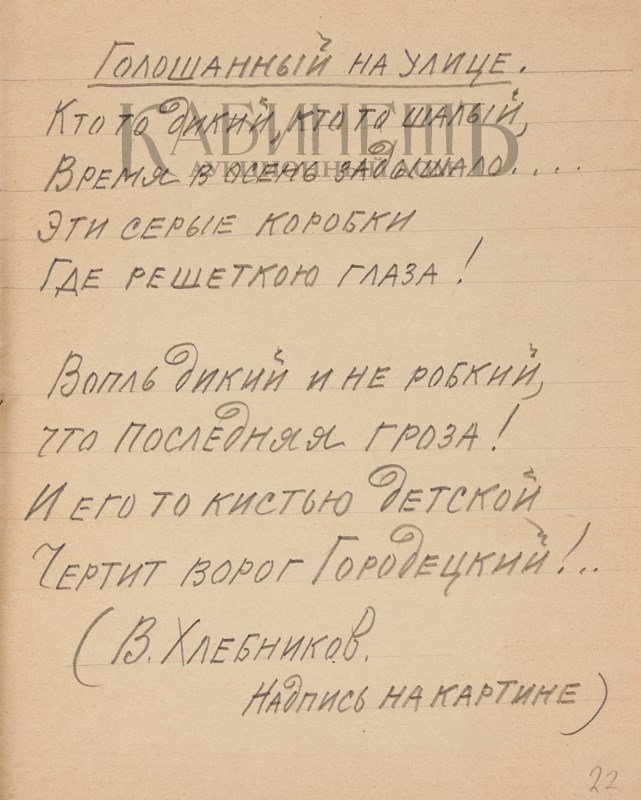 Голошанный на улице.
КАБИНЕТЪ
Кто то дикий, кто то шалый,
АУКЦИОННЫЙ
Время в осень задышало....
Эти серые коробки
Где решеткою глаза!
Вопль дикий и не робкий,
что последняя гроза!
И его то кистью детской
Чертит ворог Городецкий!..
(В. Хлебников.
Надпись на картине)
22